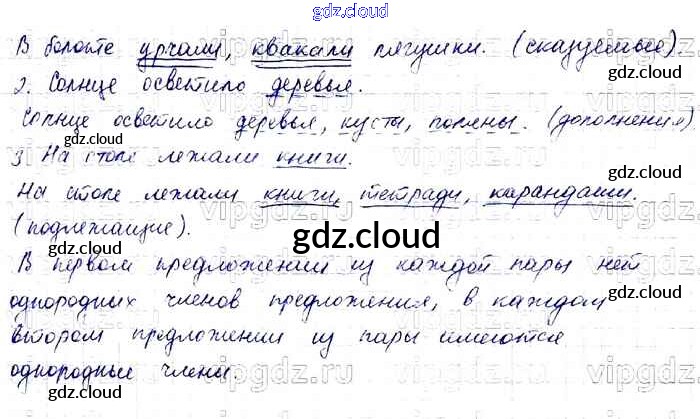 gdz.cloud
В болоте урчали, квакали лягушки. (сказуемые).
gdz.cloud
2. Солнце осветило деревья.
gdz.cloud
Солнце осветило деревья, кусты, поляны. (дополнения)
gdz.cloud
3 На столе лежали книги.
На столе лежали книги, тетради, карандаши.
gdz.cloud
(подлежащие).
gdz.cloud
В первом предложении из каждой пары нет
gdz.cloud
однородных членов предложения, в каждом
втором предложении из пары имеются
gdz.cloud
однородные члены.
vipgdz.ru